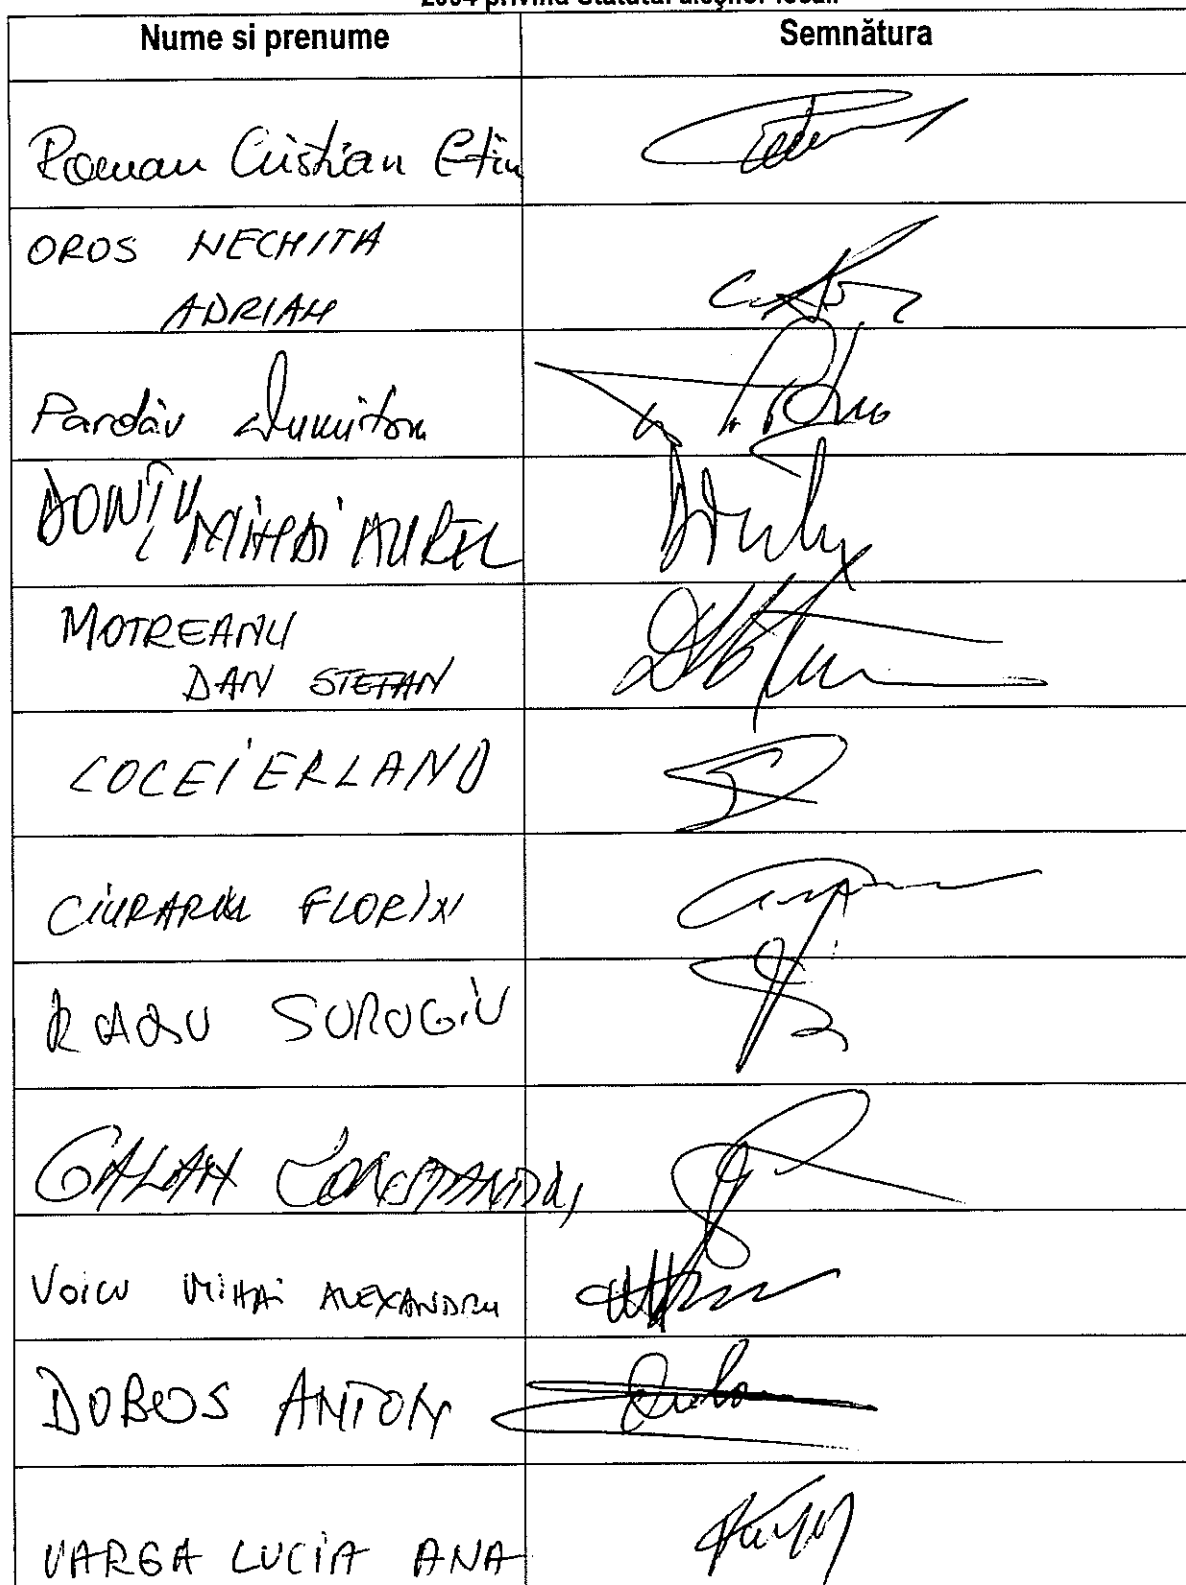 2004 privind Statutul aleşilor locali
Nume si prenume
Semnătura
Roman Cristian Ctin
OROS NECHITA
ADRIAN
Pardău Dumitru
DONȚU MIHAI AUREL
MOTREANU
DAN STEFAN
COCEI ERLAND
CIURARIU FLORIN
RADU SURUGIU
GALAN CONSTANTIN
VOICU MIHAI ALEXANDRU
DOBOS ANTON
VARGA LUCIA ANA